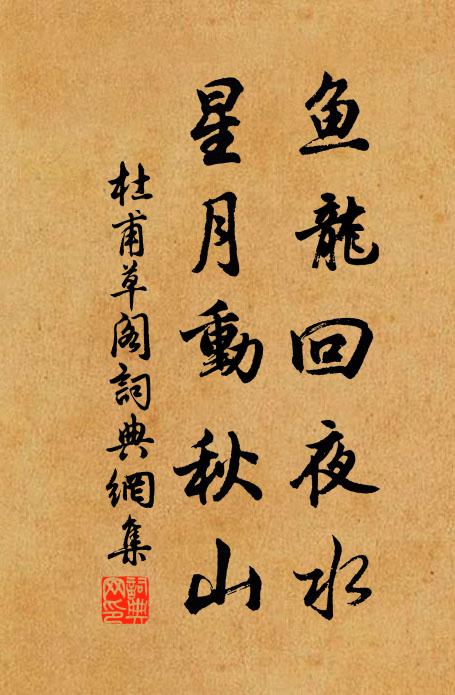 鱼龍回夜水
星月動秋山
杜甫草阁詞典網集
詞典
网印